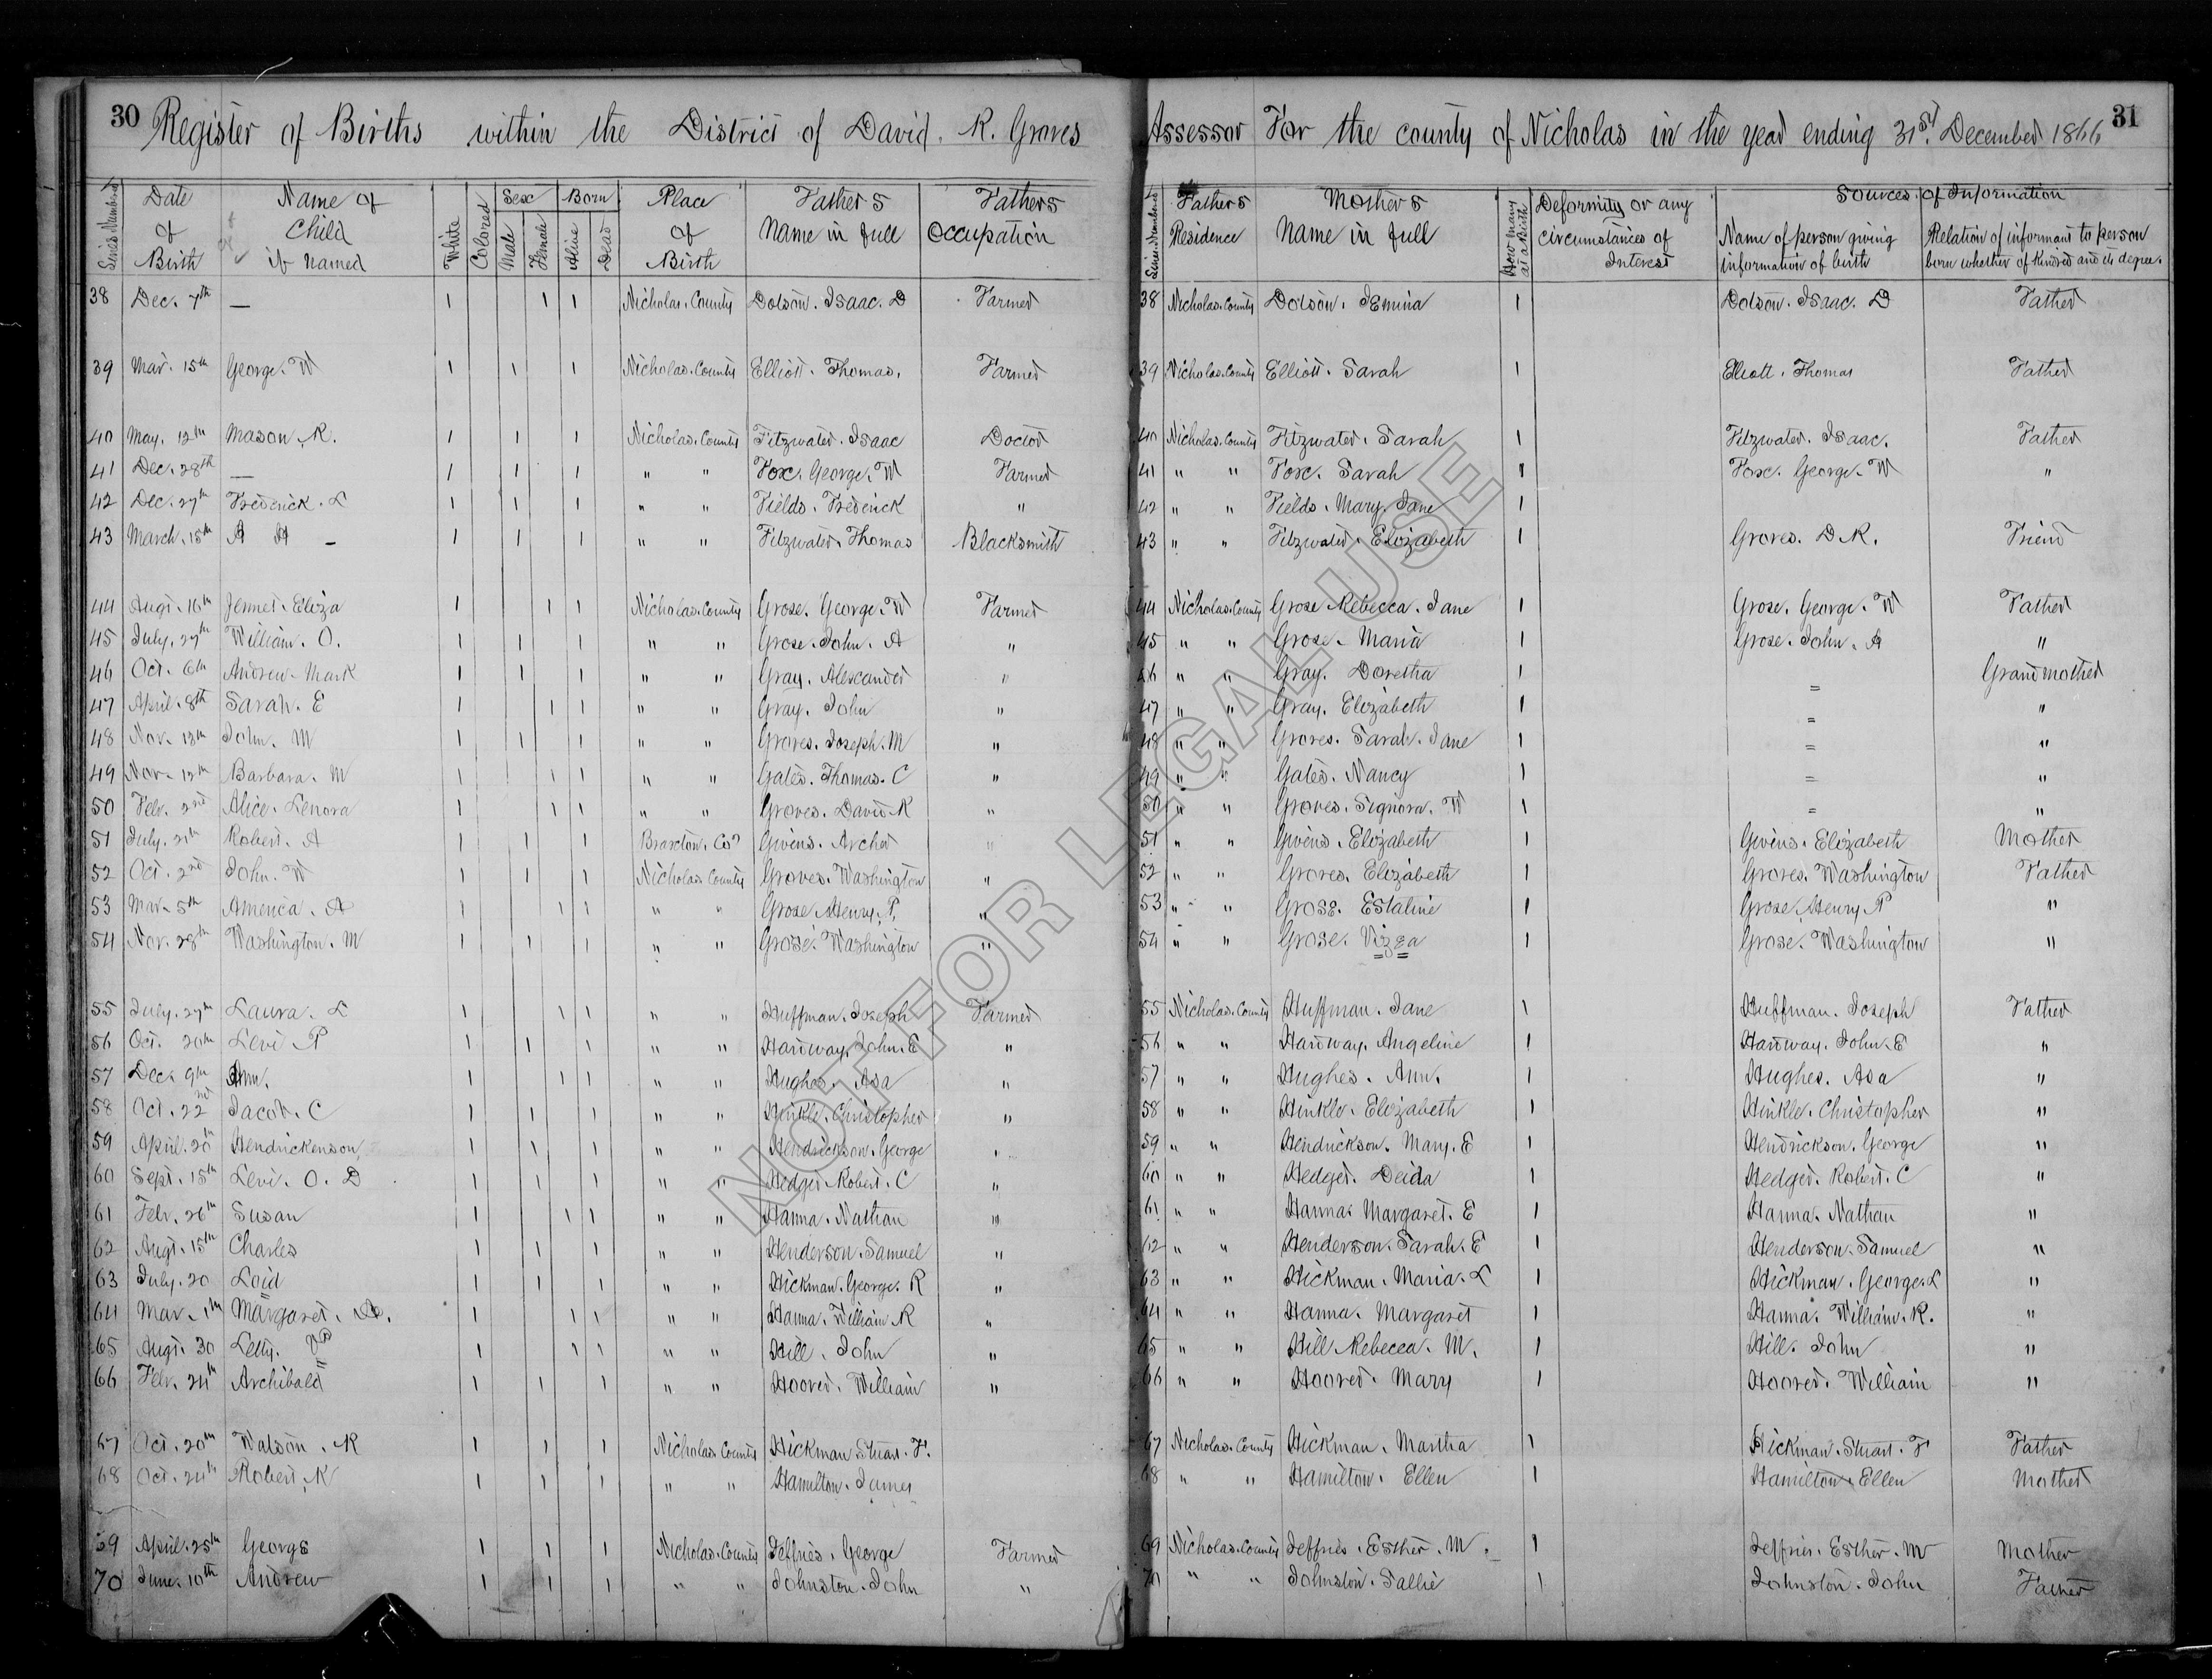 30 Register of Births within the District of David. R. Groves Assessor For the county of Nicholas in the year ending 31st. December 1866 31
Line Numbers Date of Birth Name of Child if Named White Colored Sex Male Female Born Alive Dead Place of Birth Fathers Name in full Fathers Occupation Line Numbers Fathers Residence Mothers Name in full How many at a Birth Deformity or any circumstances of Interest Sources of Information Name of person giving information of birth Relation of informant to person born whether of kindred and its degree.
38 Dec. 7th — 1 1 1 Nicholas. County Dotson. Isaac. D Farmer 38 Nicholas. County Dotson. Jemina 1 Dotson. Isaac. D Father
39 Mar. 15th George. W 1 1 1 Nicholas. County Elliott. Thomas. Farmer 39 Nicholas. County Elliott. Sarah 1 Elliott. Thomas Father
40 May. 12th Mason. R. 1 1 1 Nicholas. County Fitzwater. Isaac Doctor 40 Nicholas. County Fitzwater. Sarah 1 Fitzwater. Isaac. Father
41 Dec. 28th — 1 1 1 " " Fox. George. W Farmer 41 " " Fox. Sarah 1 Fox. George. W "
42 Dec. 27th Frederick. L 1 1 1 " " Fields. Frederick " 42 " " Fields. Mary. Jane 1
43 March. 15th A A — 1 1 1 " " Fitzwater. Thomas Blacksmith 43 " " Fitzwater. Elizabeth 1 Groves. D. R. Friend
44 Augt. 16th Jennet. Eliza 1 1 1 Nicholas. County Grose. George. W Farmer 44 Nicholas. County Grose Rebecca. Jane 1 Grose. George. W Father
45 July. 27th William. O. 1 1 1 " " Grose. John. A " 45 " " Grose. Maria 1 Grose. John. A "
46 Oct. 6th Andrew. Mark 1 1 1 " " Gray. Alexander " 46 " " Gray. Doretha 1 = Grandmother
47 April. 8th Sarah. E 1 1 1 " " Gray. John " 47 " " Gray. Elizabeth 1 = "
48 Nov. 13th John. M 1 1 1 " " Groves. Joseph. M " 48 " " Groves. Sarah. Jane 1 = "
49 Nov. 12th Barbara. M 1 1 1 " " Gates. Thomas. C " 49 " " Gates. Nancy 1 = "
50 Feb. 2nd Alice. Lenora 1 1 1 " " Groves. David R " 50 " " Groves. Signora. W 1 = "
51 July. 21th Robert. A 1 1 1 Braxton. Co Givens. Archer " 51 " " Givens. Elizabeth 1 Givens. Elizabeth Mother
52 Oct. 2nd John. W 1 1 1 Nicholas County Groves. Washington " 52 " " Groves. Elizabeth 1 Groves. Washington Father
53 Mar. 5th America. A 1 1 1 " " Grose Henry. P. " 53 " " Grose. Estaline 1 Grose. Henry P "
54 Nov. 28th Washington. M 1 1 1 " " Grose. Washington " 54 " " Grose. Vizea 1 Grose. Washington "
55 July. 27th Laura. L 1 1 1 " " Huffman. Joseph Farmer 55 Nicholas. County Huffman. Jane 1 Huffman. Joseph Father
56 Oct. 20th Levi P 1 1 1 " " Hanway. John. E " 56 " " Hanway. Angeline 1 Hanway. John. E "
57 Dec. 9th Ann. 1 1 1 " " Hughes. Asa " 57 " " Hughes. Ann. 1 Hughes. Asa "
58 Oct. 22nd Jacob. C 1 1 1 " " Hinkle. Christopher " 58 " " Hinkle. Elizabeth 1 Hinkle. Christopher "
59 April. 20th Hendrickenson, 1 1 1 " " Hendrickson. George " 59 " " Hendrickson. Mary. E 1 Hendrickson. George "
60 Sept. 15th Levi. O. D 1 1 1 " " Hedger Robert. C " 60 " " Hedger. Deida 1 Hedger. Robert. C "
61 Feb. 26th Susan 1 1 1 " " Hanna. Nathan " 61 " " Hanna. Margaret. E 1 Hanna. Nathan "
62 Augt. 15th Charles 1 1 1 " " Henderson. Samuel " 62 " " Henderson. Sarah. E 1 Henderson. Samuel "
63 July. 20 Loid 1 1 1 " " Hickman. George. R " 63 " " Hickman. Maria. L 1 Hickman. George. L "
64 Mar. 1th Margaret. A. 1 1 1 " " Hanna. William R " 64 " " Hanna. Margaret 1 Hanna. William. R. "
65 Augt. 30 Letty. 1 1 1 " " Hill. John " 65 " " Hill Rebecca. M. 1 Hill. John "
66 Feb. 24th Archibald 1 1 1 " " Hoover. William " 66 " " Hoover. Mary 1 Hoover. William "
67 Oct. 20th Watson. R 1 1 1 Nicholas. County Hickman Stuart. F. 67 Nicholas. County Hickman. Martha 1 Hickman. Stuart. F Father
68 Oct. 24th Robert. K 1 1 1 " " Hamilton. James 68 " " Hamilton. Ellen 1 Hamilton. Ellen Mother
69 April. 25th George 1 1 1 Nicholas. County Jeffries. George Farmer 69 Nicholas. County Jeffries. Esther. M. 1 Jeffries. Esther. M Mother
70 June. 10th Andrew 1 1 1 " " Johnston. John " 70 " " Johnston. Sallie 1 Johnston. John Father
NOT FOR LEGAL USE